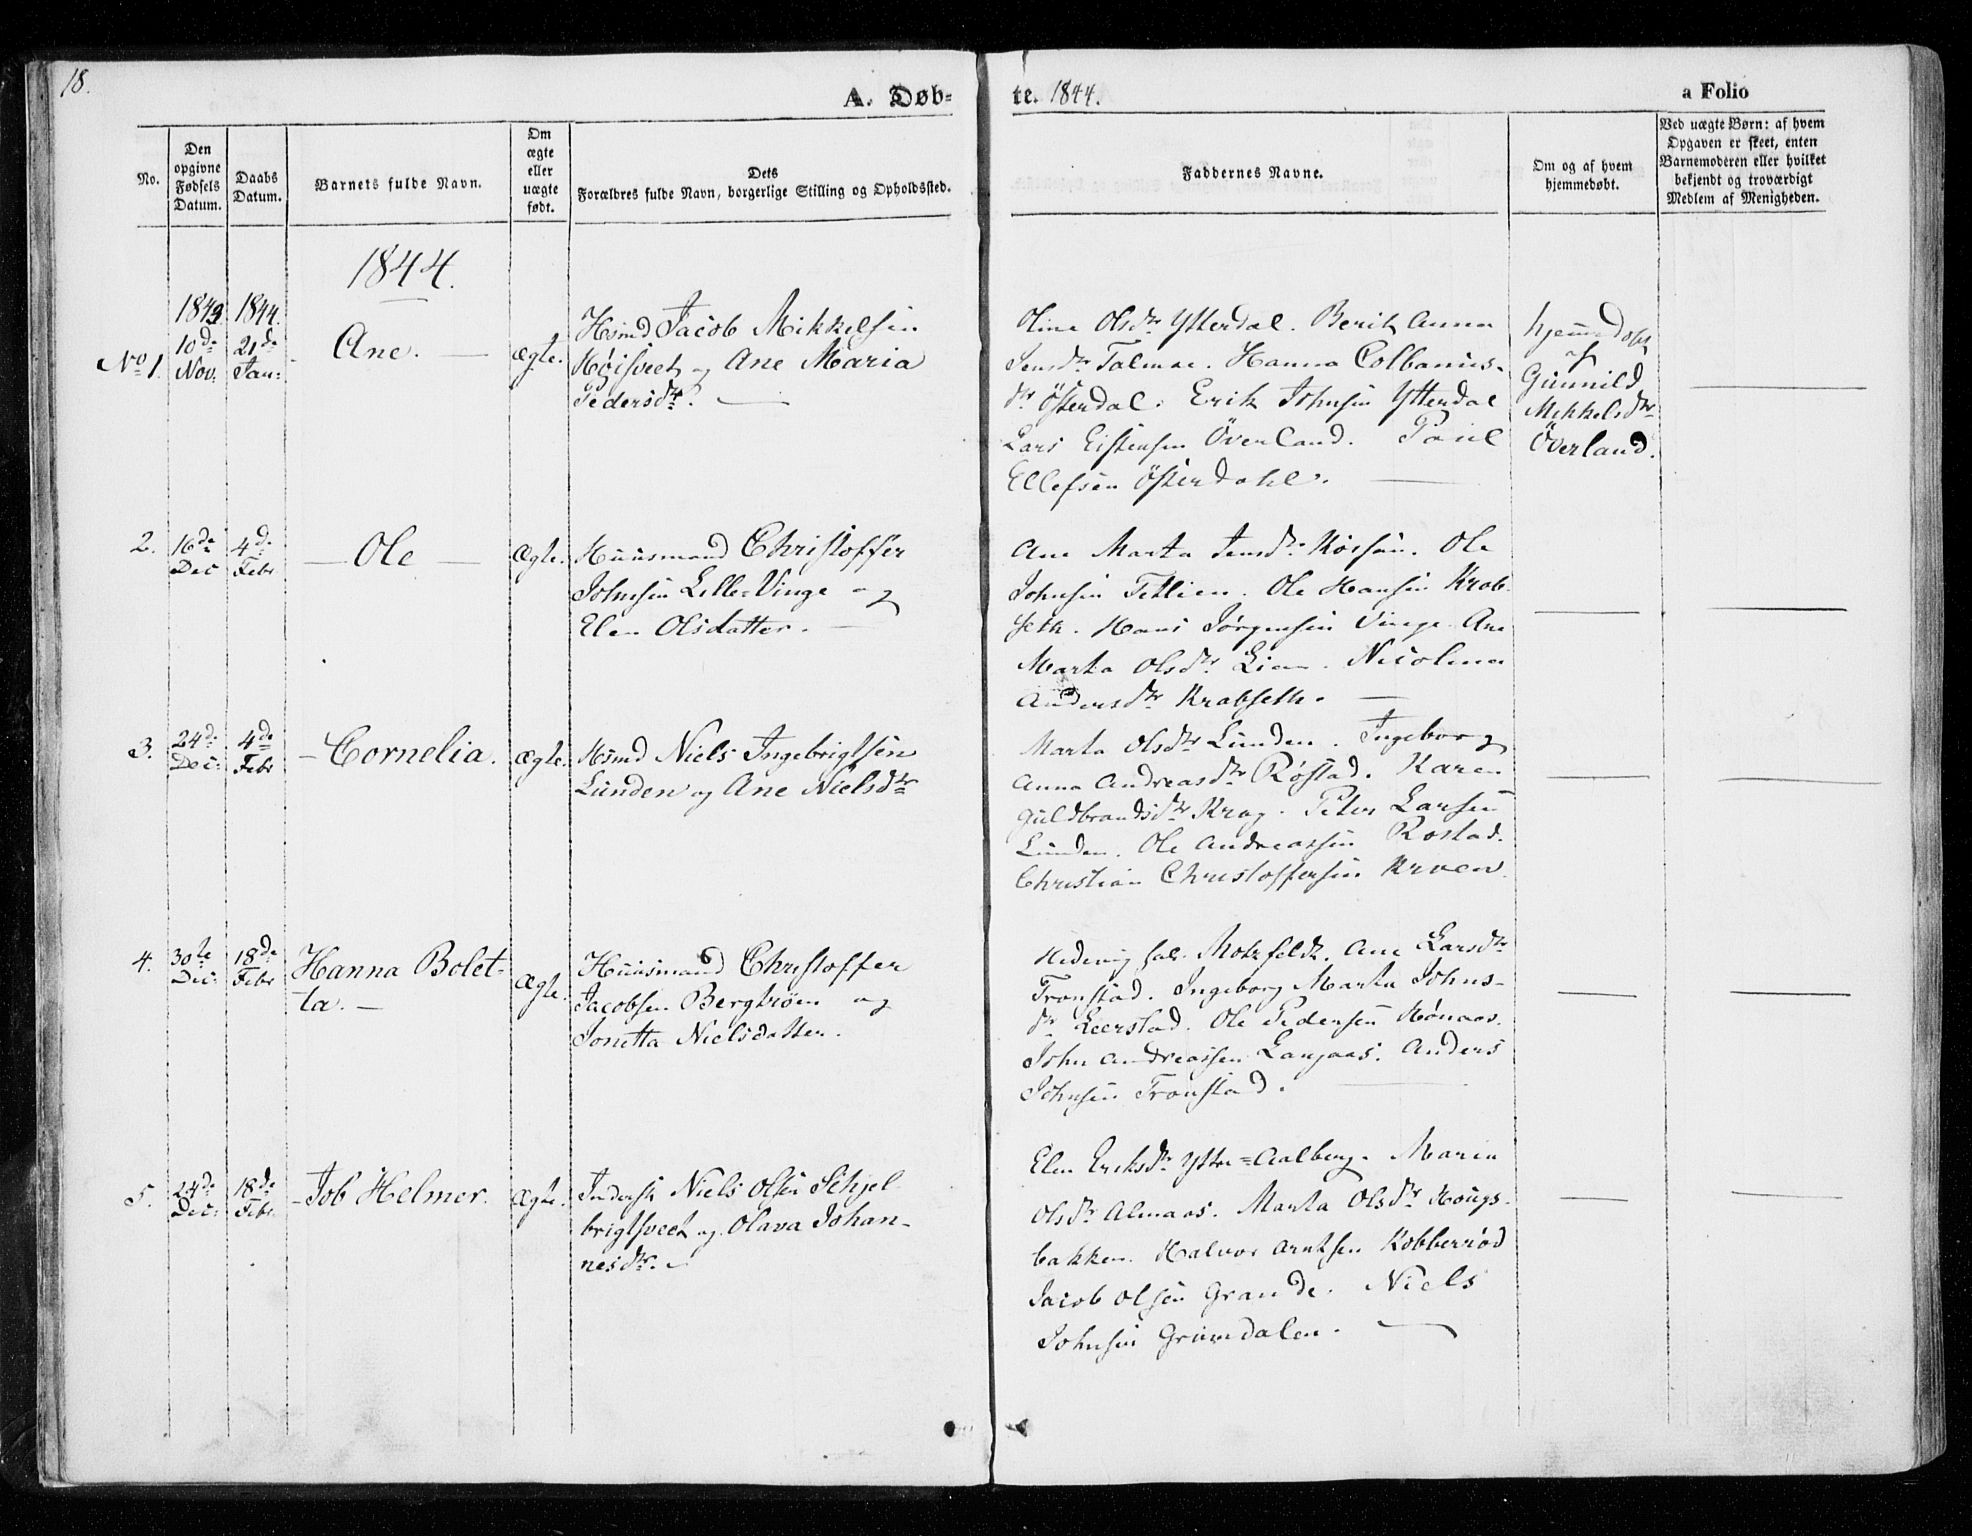 18.
A. Døb-
te. 1844.
a Folio
No.
Den
opgivne
Fødsels
Datum.
Daabs
Datum.
Barnets fulde Navn.
Om
ægte
eller
uægte
født.
Dets
Forældres fulde Navn, borgerlige Stilling og Opholdssted.
Faddernes Navne.
Om og af hvem
hjemmedøbt.
Ved uægte Børn: af hvem
Opgaven er skeet, enten
Barnemoderen eller hvilket
bekjendt og troværdigt
Medlem af Menigheden.
1844.
No 1.
1843
10de
Nov:
1844.
21de
Jan:
Ane.
ægte.
Hsmd Jacob Mikkelsen
Høisveet og Ane Maria
Pedersdtr.
Oline Olsdtr Ytterdal. Berit Anna
Jensdtr Talmoe. Hanna Colbanus-
dtr Østerdal. Erik Johnsen Ytterdal
Lars Eistensen Överland. Paul
Ellefsen Østerdahl.
hjemmedøpt
af
Gunnild
Mikkelsdtr
Överland.
2.
16de
Dec
4de
Febr
Ole
Ægte.
Huusmand Christoffer
Johnsen Lille-Vinge og
Elen Olsdatter.
Ane Marta Jensdtr Kørsen. Ole
Johnsen Tetlien. Ole Hansen Krob-
seth. Hans Jørgensen Vinge. Ane
Marta Olsdtr Lien. Nicolina
Andersdtr Krabseth.
3.
24de
Dec:
4de
Febr
Cornelia.
Ægte.
Hsmd Niels Ingebrigtsen
Lunden og Ane Nielsdtr
Marta Olsdtr Lunden. Ingeborg
Anna Andreasdtr Røstad. Karen
Guldbrandsdtr Krog. Peter Larsen
Lunden. Ole Andreassen Rostad.
Christian Christoffersen
4.
30te
Dec:
18de
Febr
Hanna Bolet-
ta.
Ægte.
Huusmand Christoffer
Jacobsen Bergtrøen og
Jonetta Nielsdatter.
Hedevig Motzfeldt. Ane Larsdtr
Tronstad. Ingeborg Marta Johns-
dtr Leerstad. Ole Pedersen Hønaas.
John Andreassen Langaas. Anders
Johnsen Tronstad.
5.
24de
Dec:
18de
Febr.
Job Helmer.
Ægte.
Inderst Niels Olsen Schjel
brigtsveet og Olava Johan-
nesdtr.
Elen Eriksdtr Ytter-Aalberg. Maria
Olsdtr Almaas. Marta Olsdtr Hougs-
bakken. Halvor Arntsen Kobberrød
Jacob Olsen Grande. Niels
Johnsen Grundalen.